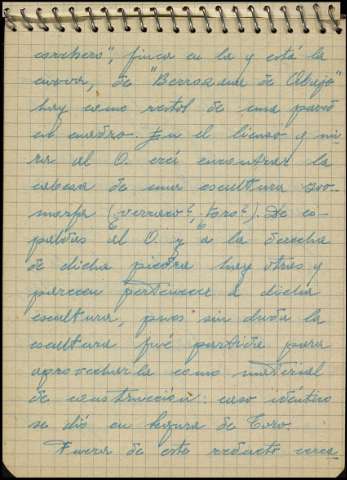 corchero", finca en la y está la
cueva, de "Berrocana de Abajo"
hay como restos de una pared
en cuadro. En el lienzo y mi-
ra al O. creí encontrar la
cabeza de una escultura zoo-
morfa (¿verraco?, ¿toro?). De es-
paldas al O. y a la derecha
de dicha piedra hay otras y
parecen pertenecer a dicha
escultura, pues sin duda la
escultura fué partida para
aprovecharla como material
de construcción: caso idéntico
se dió en Segura de Toro.
Fuera de este reducto cerca